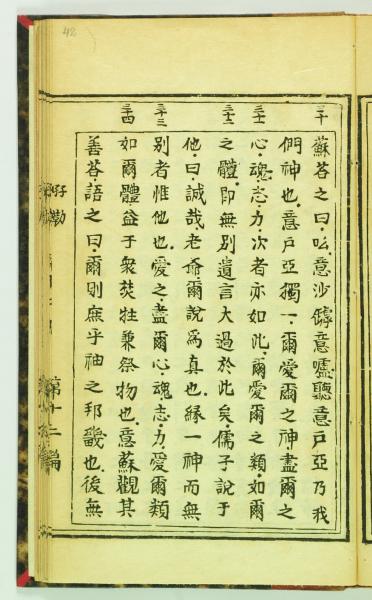 42
蘇荅之曰意沙意噓聽意戶亞乃我
們神也意戶亞獨一爾愛爾之神盡爾之
三十一
心魂志力次者亦如此爾愛爾之類如爾
三十二
之體即無別遺言大過於此矣儒子說于
他曰誠哉老爺爾說爲真也緣一神而無
三十三
別者惟他也愛之盡爾心魂志力愛爾類
三十四
如爾體益于衆焚牲兼祭物也意蘇觀其
善荅語之曰爾則庶乎神之邦畿也後無
第十二篇